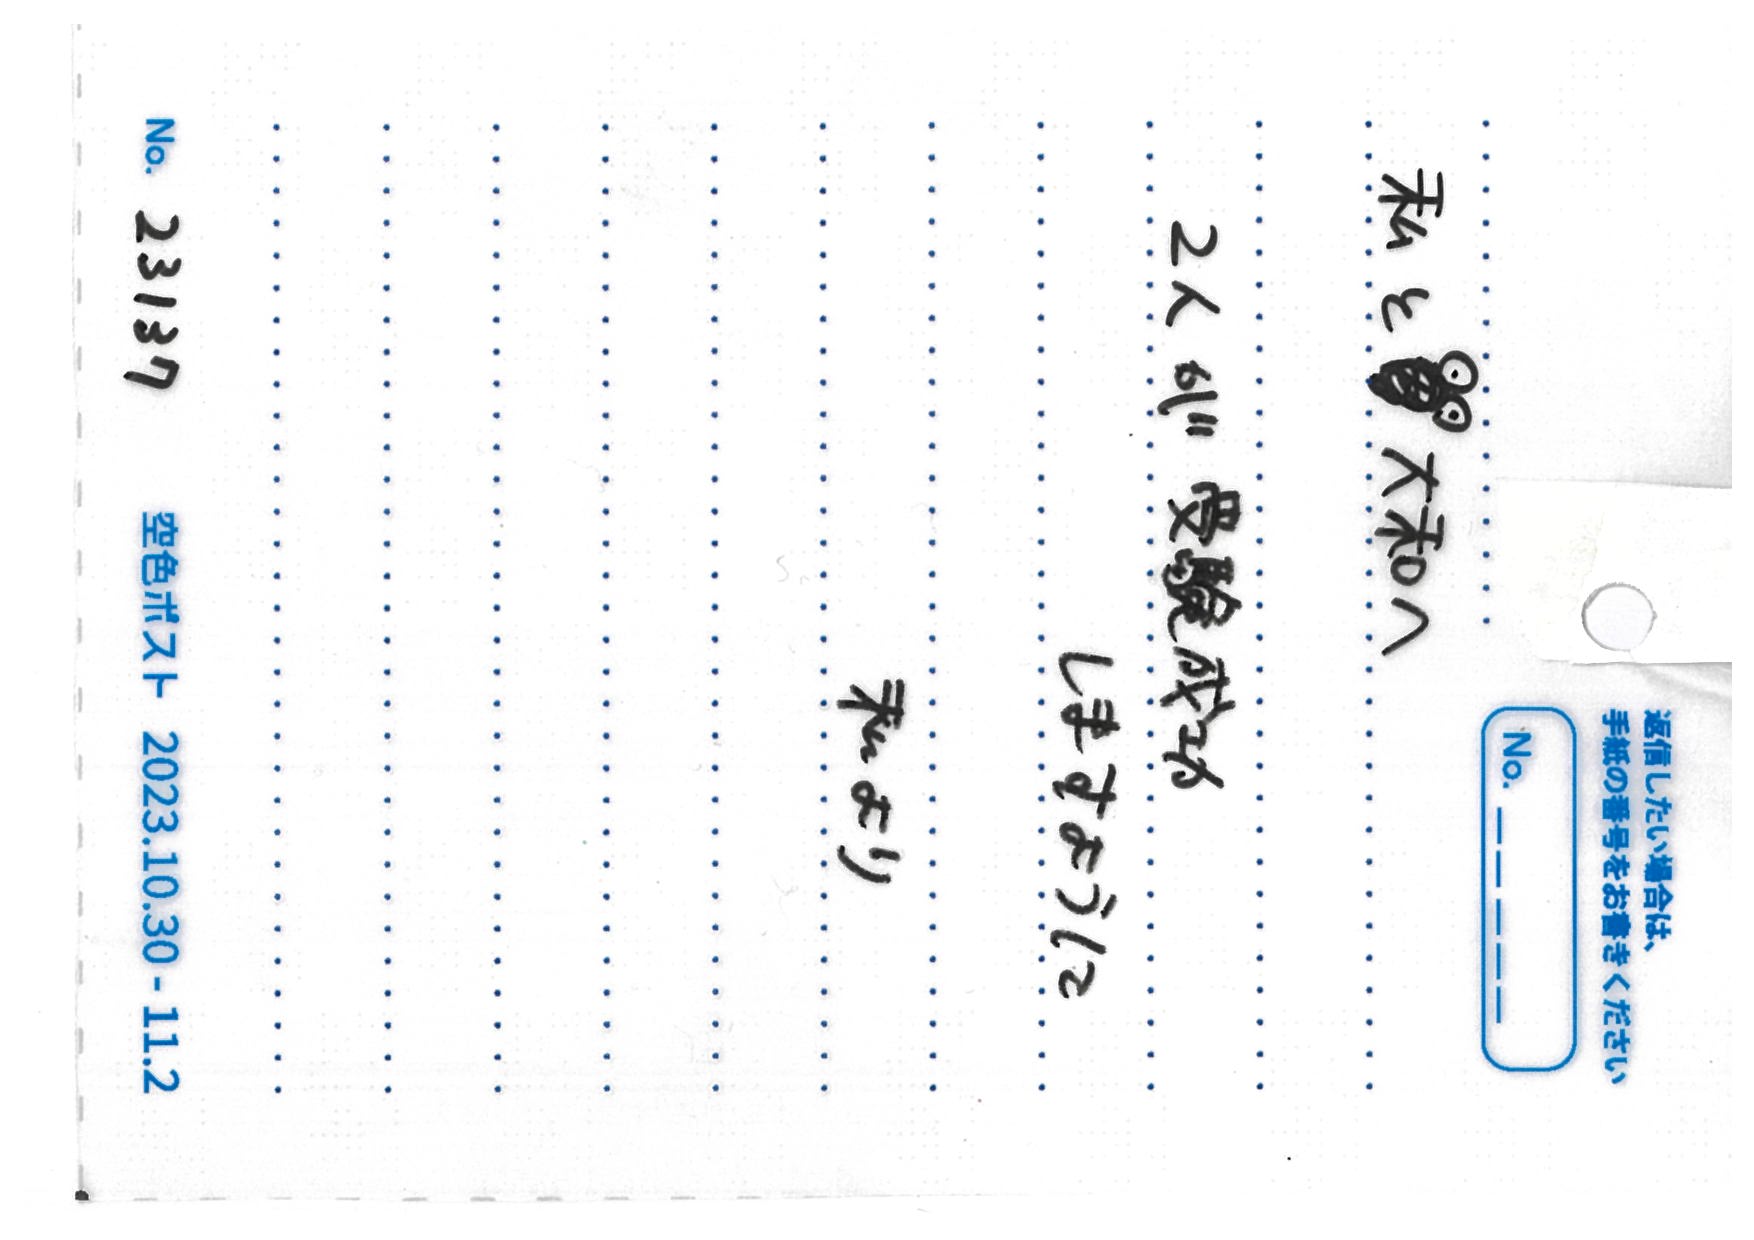 返信したい場合は、
手紙の番号をお書きください
No. _ _ _ _ _
私と 大和へ
2人が受験成功
しますように
私より
No. 23137
空色ポスト 2023.10.30 - 11.2